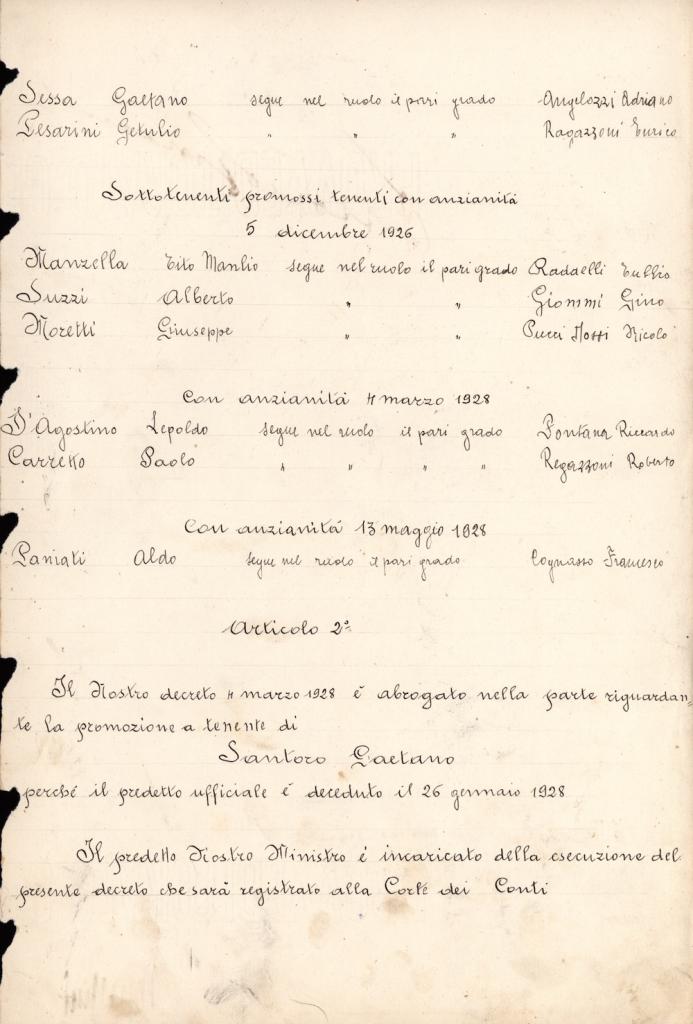 Sessa Gaetano segue nel ruolo il pari grado Angelozzi Adriano
Pesarini Getulio " " " Ragazzoni Enrico
Sottotenenti promossi tenenti con anzianità
5 dicembre 1926
Manzella Tito Manlio segue nel ruolo il pari grado Radaelli Tullio
Suzzi Alberto " " Giommi Gino
Moretti Giuseppe " " Pucci Nicolò
Con anzianità 4 marzo 1928
D'Agostino Lepoldo segue nel ruolo il pari grado Fontana Riccardo
Carretto Paolo " " " " Regazzoni Roberto
Con anzianità 13 maggio 1928
Paniati Aldo segue nel ruolo il pari grado Cognasso Francesco
Articolo 2°
Il Nostro decreto 4 marzo 1928 è abrogato nella parte riguardan-
te la promozione a tenente di
Santoro Gaetano
perché il predetto ufficiale è deceduto il 26 gennaio 1928
Il predetto Nostro Ministro è incaricato della esecuzione del
presente decreto che sarà registrato alla Corte dei Conti